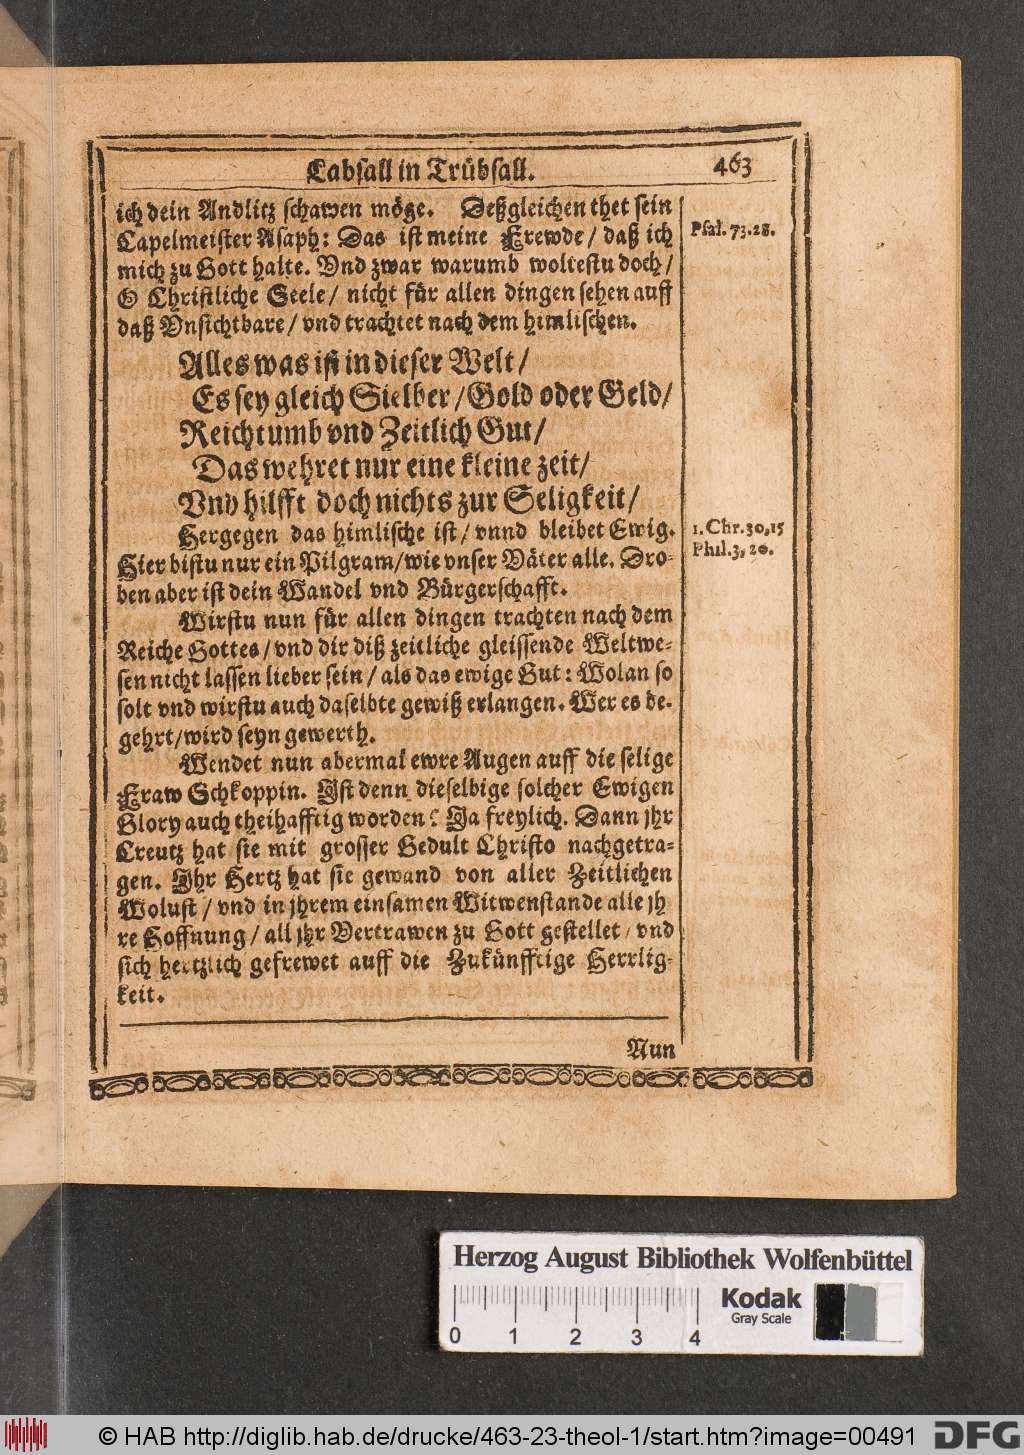 Labsall in Trübsall. 463
ich dein Andlitz schawen möge. Deßgleichen thet sein
Capelmeister Asaph: Das ist meine Frewde / daß ich
mich zu Gott halte. Vnd zwar warumb woltestu doch /
O Christliche Seele / nicht für allen dingen sehen auff
daß Vnsichtbare / vnd trachtet nach dem himlischen.
Psal. 73.28.
Alles was ist in dieser Welt /
Es sey gleich Sielber / Gold oder Geld /
Reichtumb vnd Zeitlich Gut /
Das wehret nur eine kleine zeit /
Vnd hilfft doch nichts zur Seligkeit /
Hergegen das himlische ist / vnnd bleibet Ewig.
Hier bistu nur ein Pilgram / wie vnser Väter alle. Dro-
ben aber ist dein Wandel vnd Bürgerschafft.
1. Chr. 30,15
Phil. 3, 20.
Wirstu nun für allen dingen trachten nach dem
Reiche Gottes / vnd dir diß zeitliche gleissende Weltwe-
sen nicht lassen lieber sein / als das ewige Gut: Wolan so
solt vnd wirstu auch daselbte gewiß erlangen. Wer es be-
gehrt / wird seyn gewerth.
Wendet nun abermal ewre Augen auff die selige
Fraw Schkoppin. Ist denn dieselbige solcher Ewigen
Glory auch theihafftig worden? Ja freylich. Dann jhr
Creutz hat sie mit grosser Gedult Christo nachgetra-
gen. Ihr Hertz hat sie gewand von aller Zeitlichen
Wolust / vnd in jhrem einsamen Witwenstande alle jh
re Hoffnung / all jhr Vertrawen zu Gott gestellet / vnd
sich hertzlich gefrewet auff die Zukünfftige Herrlig-
keit.
Nun
Herzog August Bibliothek Wolfenbüttel
0 1 2 3 4
Kodak
Gray Scale
© HAB http://diglib.hab.de/drucke/463-23-theol-1/start.htm?image=00491
DFG